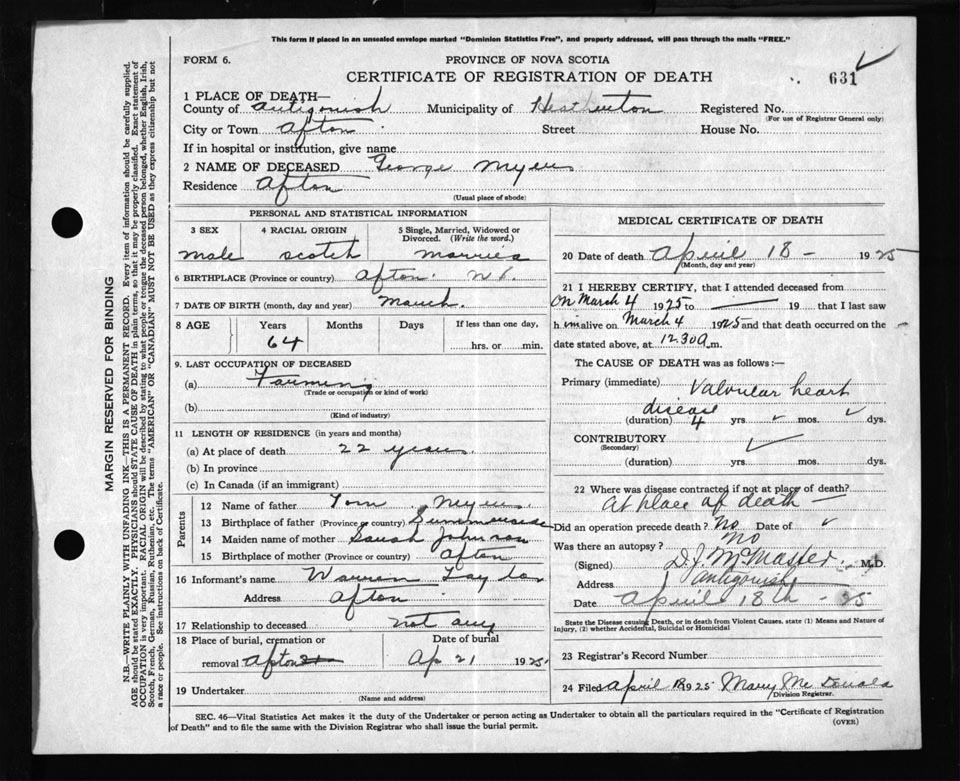 This form if placed in an unsealed envelope marked "Dominion Statistics Free", and properly addressed, will pass through the mails "FREE."
FORM 6.
PROVINCE OF NOVA SCOTIA
CERTIFICATE OF REGISTRATION OF DEATH
631
1 PLACE OF DEATH—
County of Antigonish Municipality of Heatherton Registered No.
(For use of Registrar General only)
City or Town Afton Street House No.
If in hospital or institution, give name
2 NAME OF DECEASED George Myers
Residence Afton
(Usual place of abode)
PERSONAL AND STATISTICAL INFORMATION
3 SEX 4 RACIAL ORIGIN 5 Single, Married, Widowed or Divorced. (Write the word.)
male scotch married
6 BIRTHPLACE (Province or country) Afton N S.
7 DATE OF BIRTH (month, day and year) March
8 AGE Years Months Days If less than one day,
64 hrs. or min.
9. LAST OCCUPATION OF DECEASED
(a) Farming
(Trade or occupation or kind of work)
(b)
(Kind of industry)
11 LENGTH OF RESIDENCE (in years and months)
(a) At place of death 22 years
(b) In province
(c) In Canada (if an immigrant)
Parents
12 Name of father Tom Myers
13 Birthplace of father (Province or country) Summerside
14 Maiden name of mother Sarah Johnson
15 Birthplace of mother (Province or country) Afton
16 Informant's name Warren Taylor
Address Afton
17 Relationship to deceased not any
18 Place of burial, cremation or Date of burial
removal Afton Ap 21 1925
19 Undertaker
(Name and address)
MEDICAL CERTIFICATE OF DEATH
20 Date of death April 18 - 1925
(Month, day and year)
21 I HEREBY CERTIFY, that I attended deceased from
on March 4 1925 to — 19 that I last saw
h im alive on March 4 1925 and that death occurred on the
date stated above, at 12.30 a m.
The CAUSE OF DEATH was as follows:—
Primary (immediate) Valvular heart
disease
(duration) 4 yrs mos. dys.
CONTRIBUTORY
(Secondary)
(duration) yrs mos. dys.
22 Where was disease contracted if not at place of death?
At place of death
Did an operation precede death? No Date of
Was there an autopsy? No
(Signed) D.J. McMaster M.D.
Address Antigonish
Date April 18th - 25
State the Disease causing Death, or in death from Violent Causes, state (1) Means and Nature of
Injury, (2) whether Accidental, Suicidal or Homicidal
23 Registrar's Record Number
24 Filed April 18 1925 Mary McDonald
Division Registrar.
SEC. 46—Vital Statistics Act makes it the duty of the Undertaker or person acting as Undertaker to obtain all the particulars required in the "Certificate of Registration
of Death" and to file the same with the Division Registrar who shall issue the burial permit. (OVER)
MARGIN RESERVED FOR BINDING
N.B.—WRITE PLAINLY WITH UNFADING INK—THIS IS A PERMANENT RECORD. Every item of information should be carefully supplied.
AGE should be stated EXACTLY. PHYSICIANS should STATE CAUSE OF DEATH in plain terms, so that it may be properly classified. Exact statement of
OCCUPATION is very important. RACIAL ORIGIN will be described by stating to what people or tongue the deceased person belonged, whether English, Irish,
Scotch, French, German, Russian, Ruthenian, etc. The terms "AMERICAN" or "CANADIAN" MUST NOT BE USED as they express citizenship but not
a race or people. See instructions on back of Certificate.